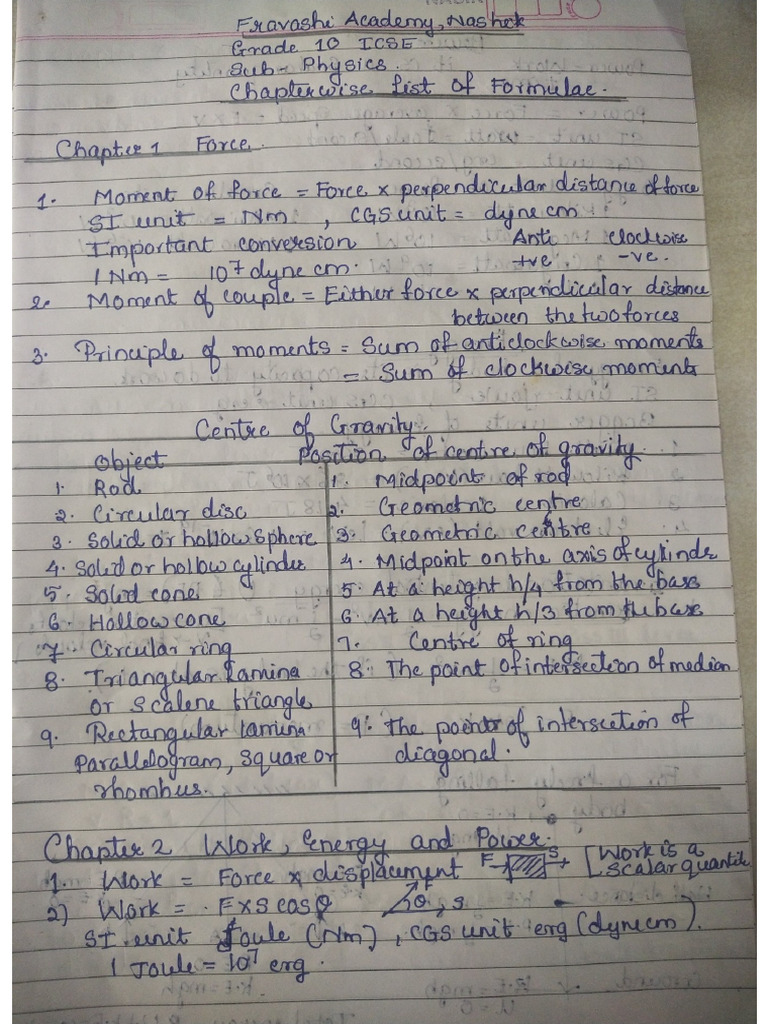 Fravashi Academy, Nashik
Grade 10 ICSE
Sub- Physics.
Chapterwise List of Formulae.
Chapter 1 Force.
1. Moment of force = Force x perpendicular distance of force
SI unit = Nm , CGS unit = dyne cm
Important conversion Anti clockwise
1 Nm = 10⁷ dyne cm. +ve -ve.
2. Moment of couple = Either force x perpendicular distance
between the two forces
3. Principle of moments = Sum of anticlockwise moments
= Sum of clockwise moments
Centre of Gravity.
Object Position of centre of gravity.
1. Rod 1. Midpoint of rod
2. Circular disc 2. Geometric centre
3. Solid or hollow sphere 3. Geometric centre
4. Solid or hollow cylinder 4. Midpoint on the axis of cylinder
5. Solid cone 5. At a height h/4 from the base
6. Hollow cone 6. At a height h/3 from the base
7. Circular ring 7. Centre of ring
8. Triangular lamina 8. The point of intersection of median
or scalene triangle
9. Rectangular lamina 9. The point of intersection of
Parallelogram, square or diagonal.
rhombus.
Chapter 2 Work, Energy and Power.
1. Work = Force x displacement F S [Work is a
scalar quantite
2) Work = F x S cos θ F θ, s
SI unit Joule (Nm), CGS unit erg (dyne cm).
1 Joule = 10⁷ erg.